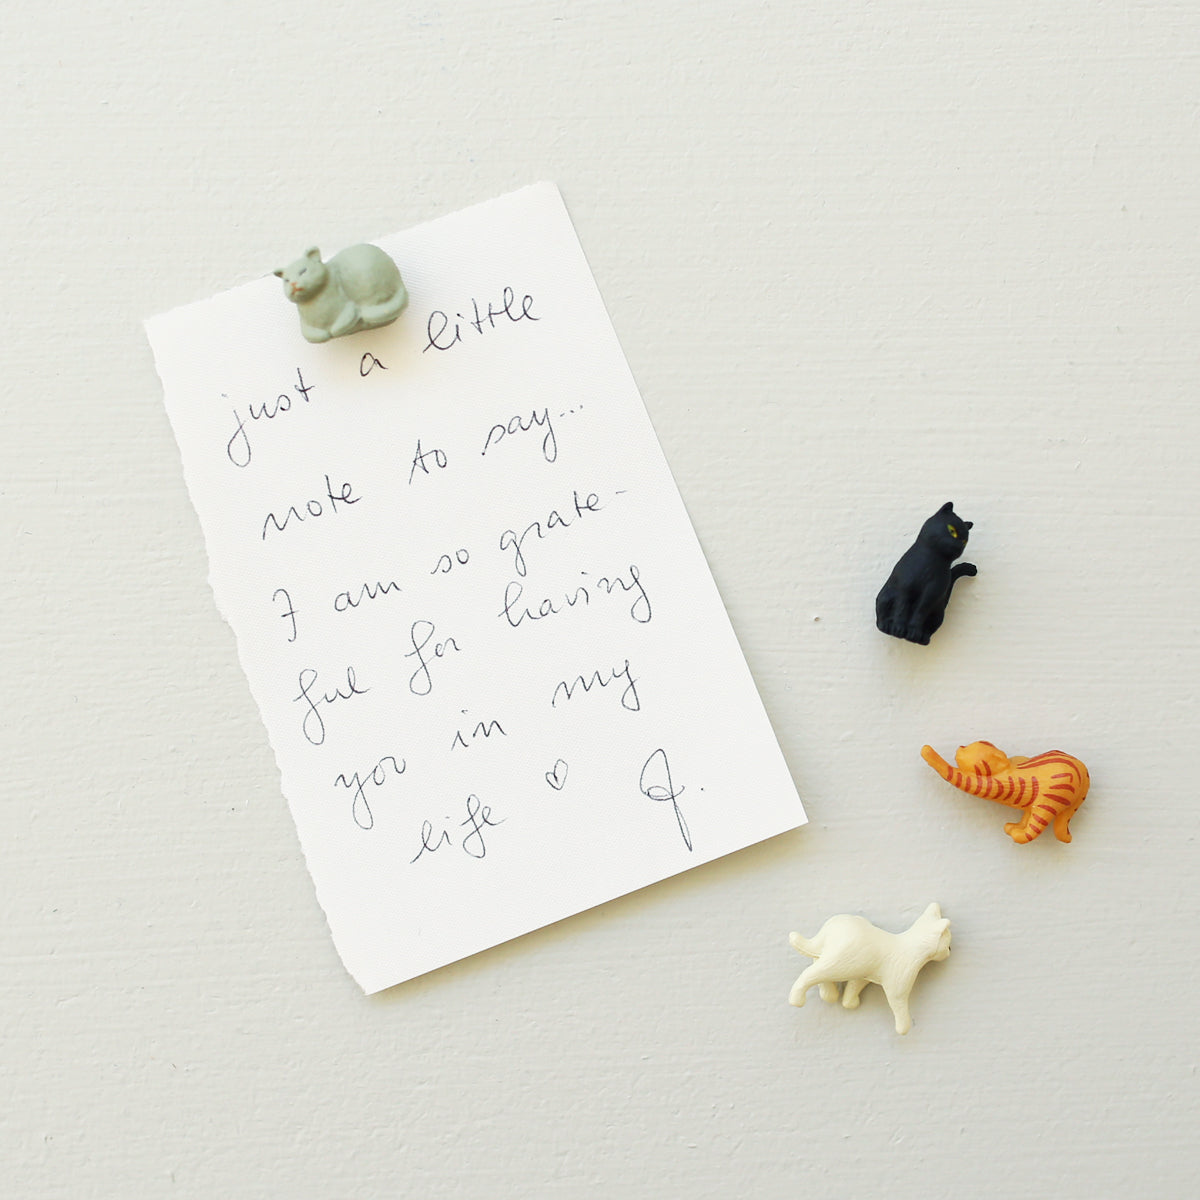 just a little
note to say...
I am so grate-
ful for having
you in my
life ♡ J.